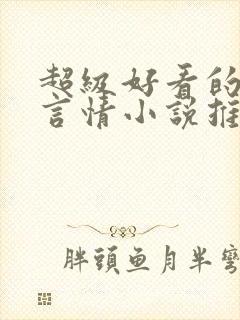 超級好看的
言情小說推
胖頭魚月半彎